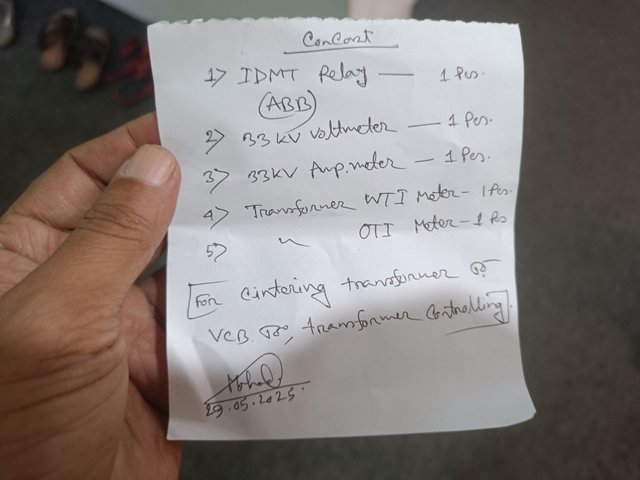 ConCast
1) IDMT Relay — 1 Pcs.
(ABB)
2) 33 KV Voltmeter — 1 Pcs.
3) 33KV Amp.meter — 1 Pcs.
4) Transformer WTI Meter - 1 Pcs.
5) " OTI Meter - 1 Pcs
[For cintering transformer
VCB, transformer Controlling].
29.05.2025.